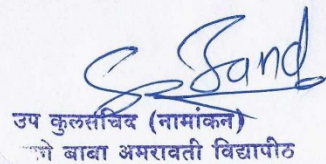 उप कुलसचिव (नामांकन)
बाबा अमरावती विद्यापीठ